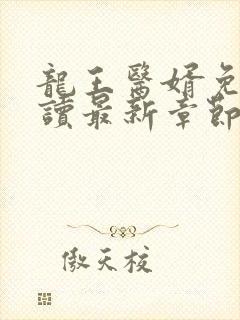 龍王醫婿免
讀最新章節
傲天校